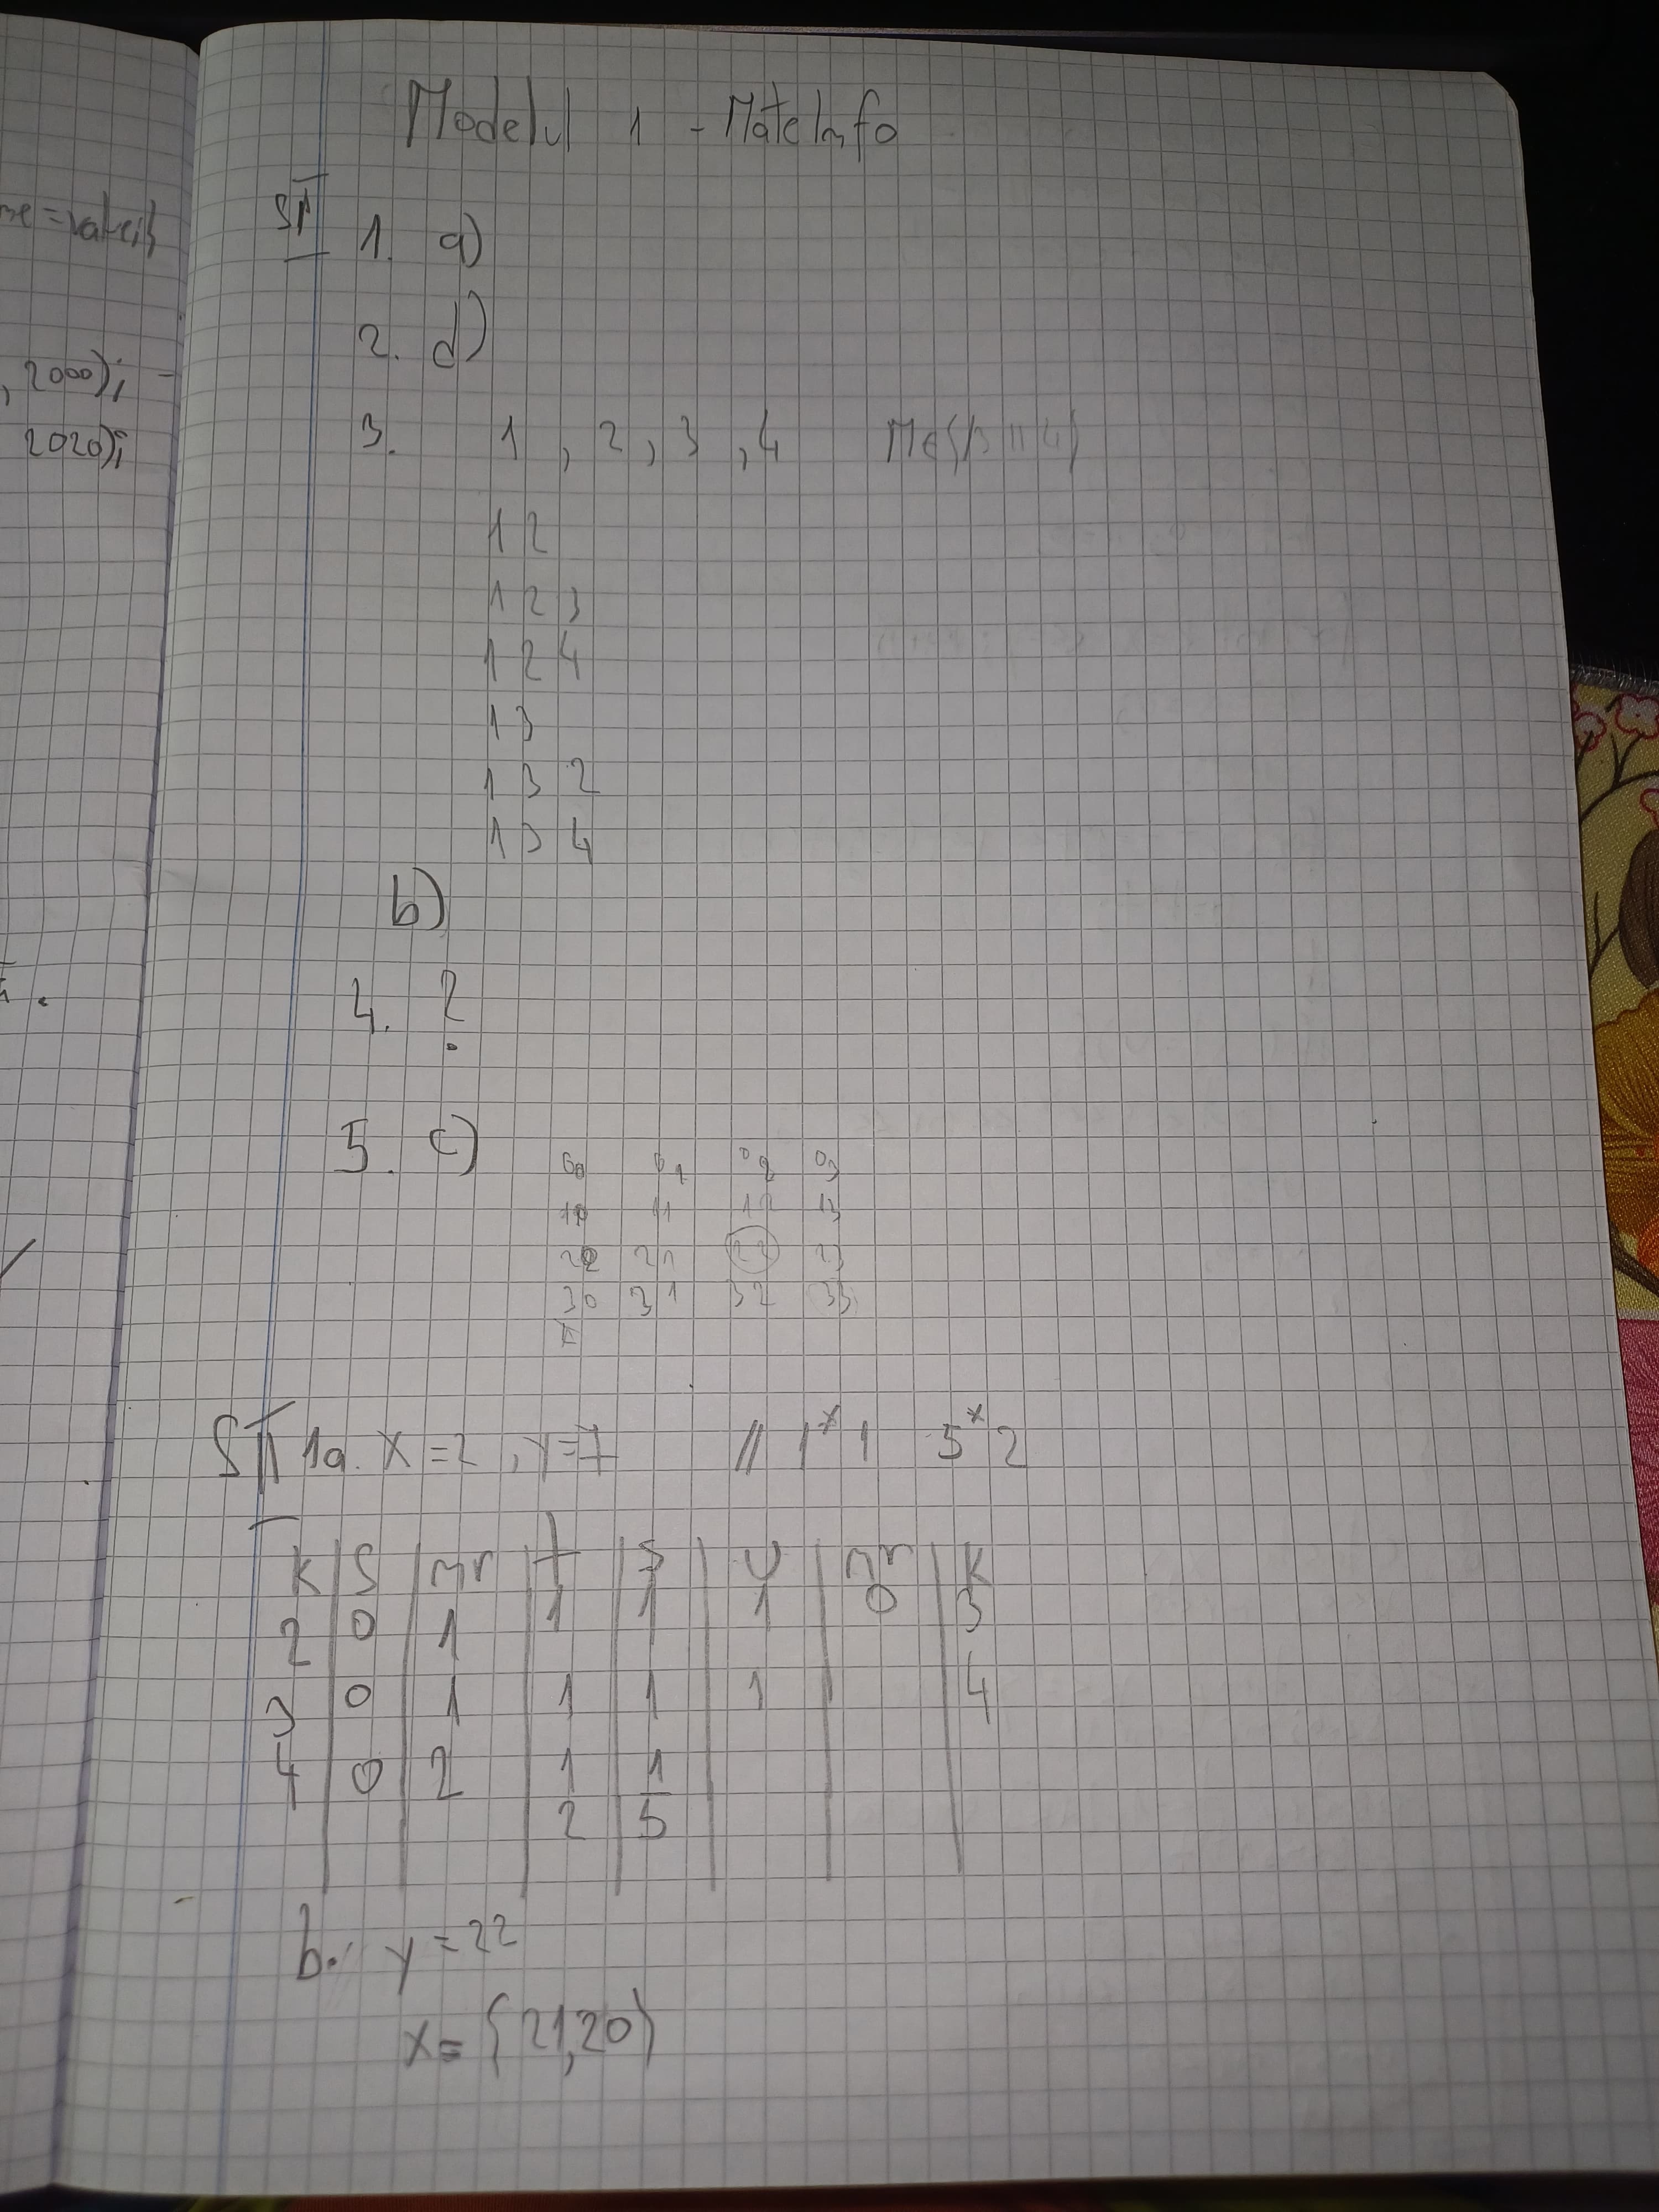 , 2000);
2020);
Modelul 1 - MateInfo
SI
1. a)
2. d)
3. 1, 2, 3, 4
1 2
1 2 3
1 2 4
1 3
1 3 2
1 3 4
b)
4. ?
5. c)
00 01 02 03
10 11 12 13
20 21 22 23
30 31 32 33
SII 1a. x=2, y=7 // 1*1 5*2
k | s | nr | t | s | y | nr | k
2 | 0 | 1 | 1 | 1 | 1 | 0 | 3
3 | 0 | 1 | 1 | 1 | 1 | | 4
4 | 0 | 2 | 1 | 1
2 | 5
b. y=22
x={21,20}